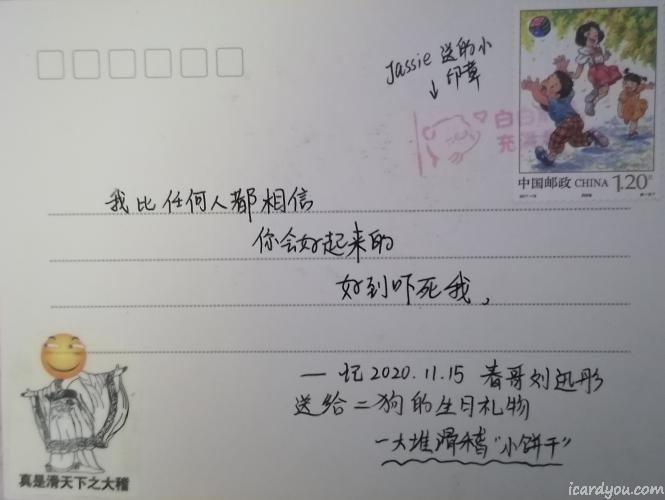 Jassie 送的小
印章
↓
白白
充满
中国邮政 CHINA 1.20元
我比任何人都相信
你会好起来的
好到吓死我,
— 记2020.11.15 春哥刘迅彤
送给二狗的生日礼物
一大堆滑稽“小饼干”
真是滑天下之大稽
icardyou.com